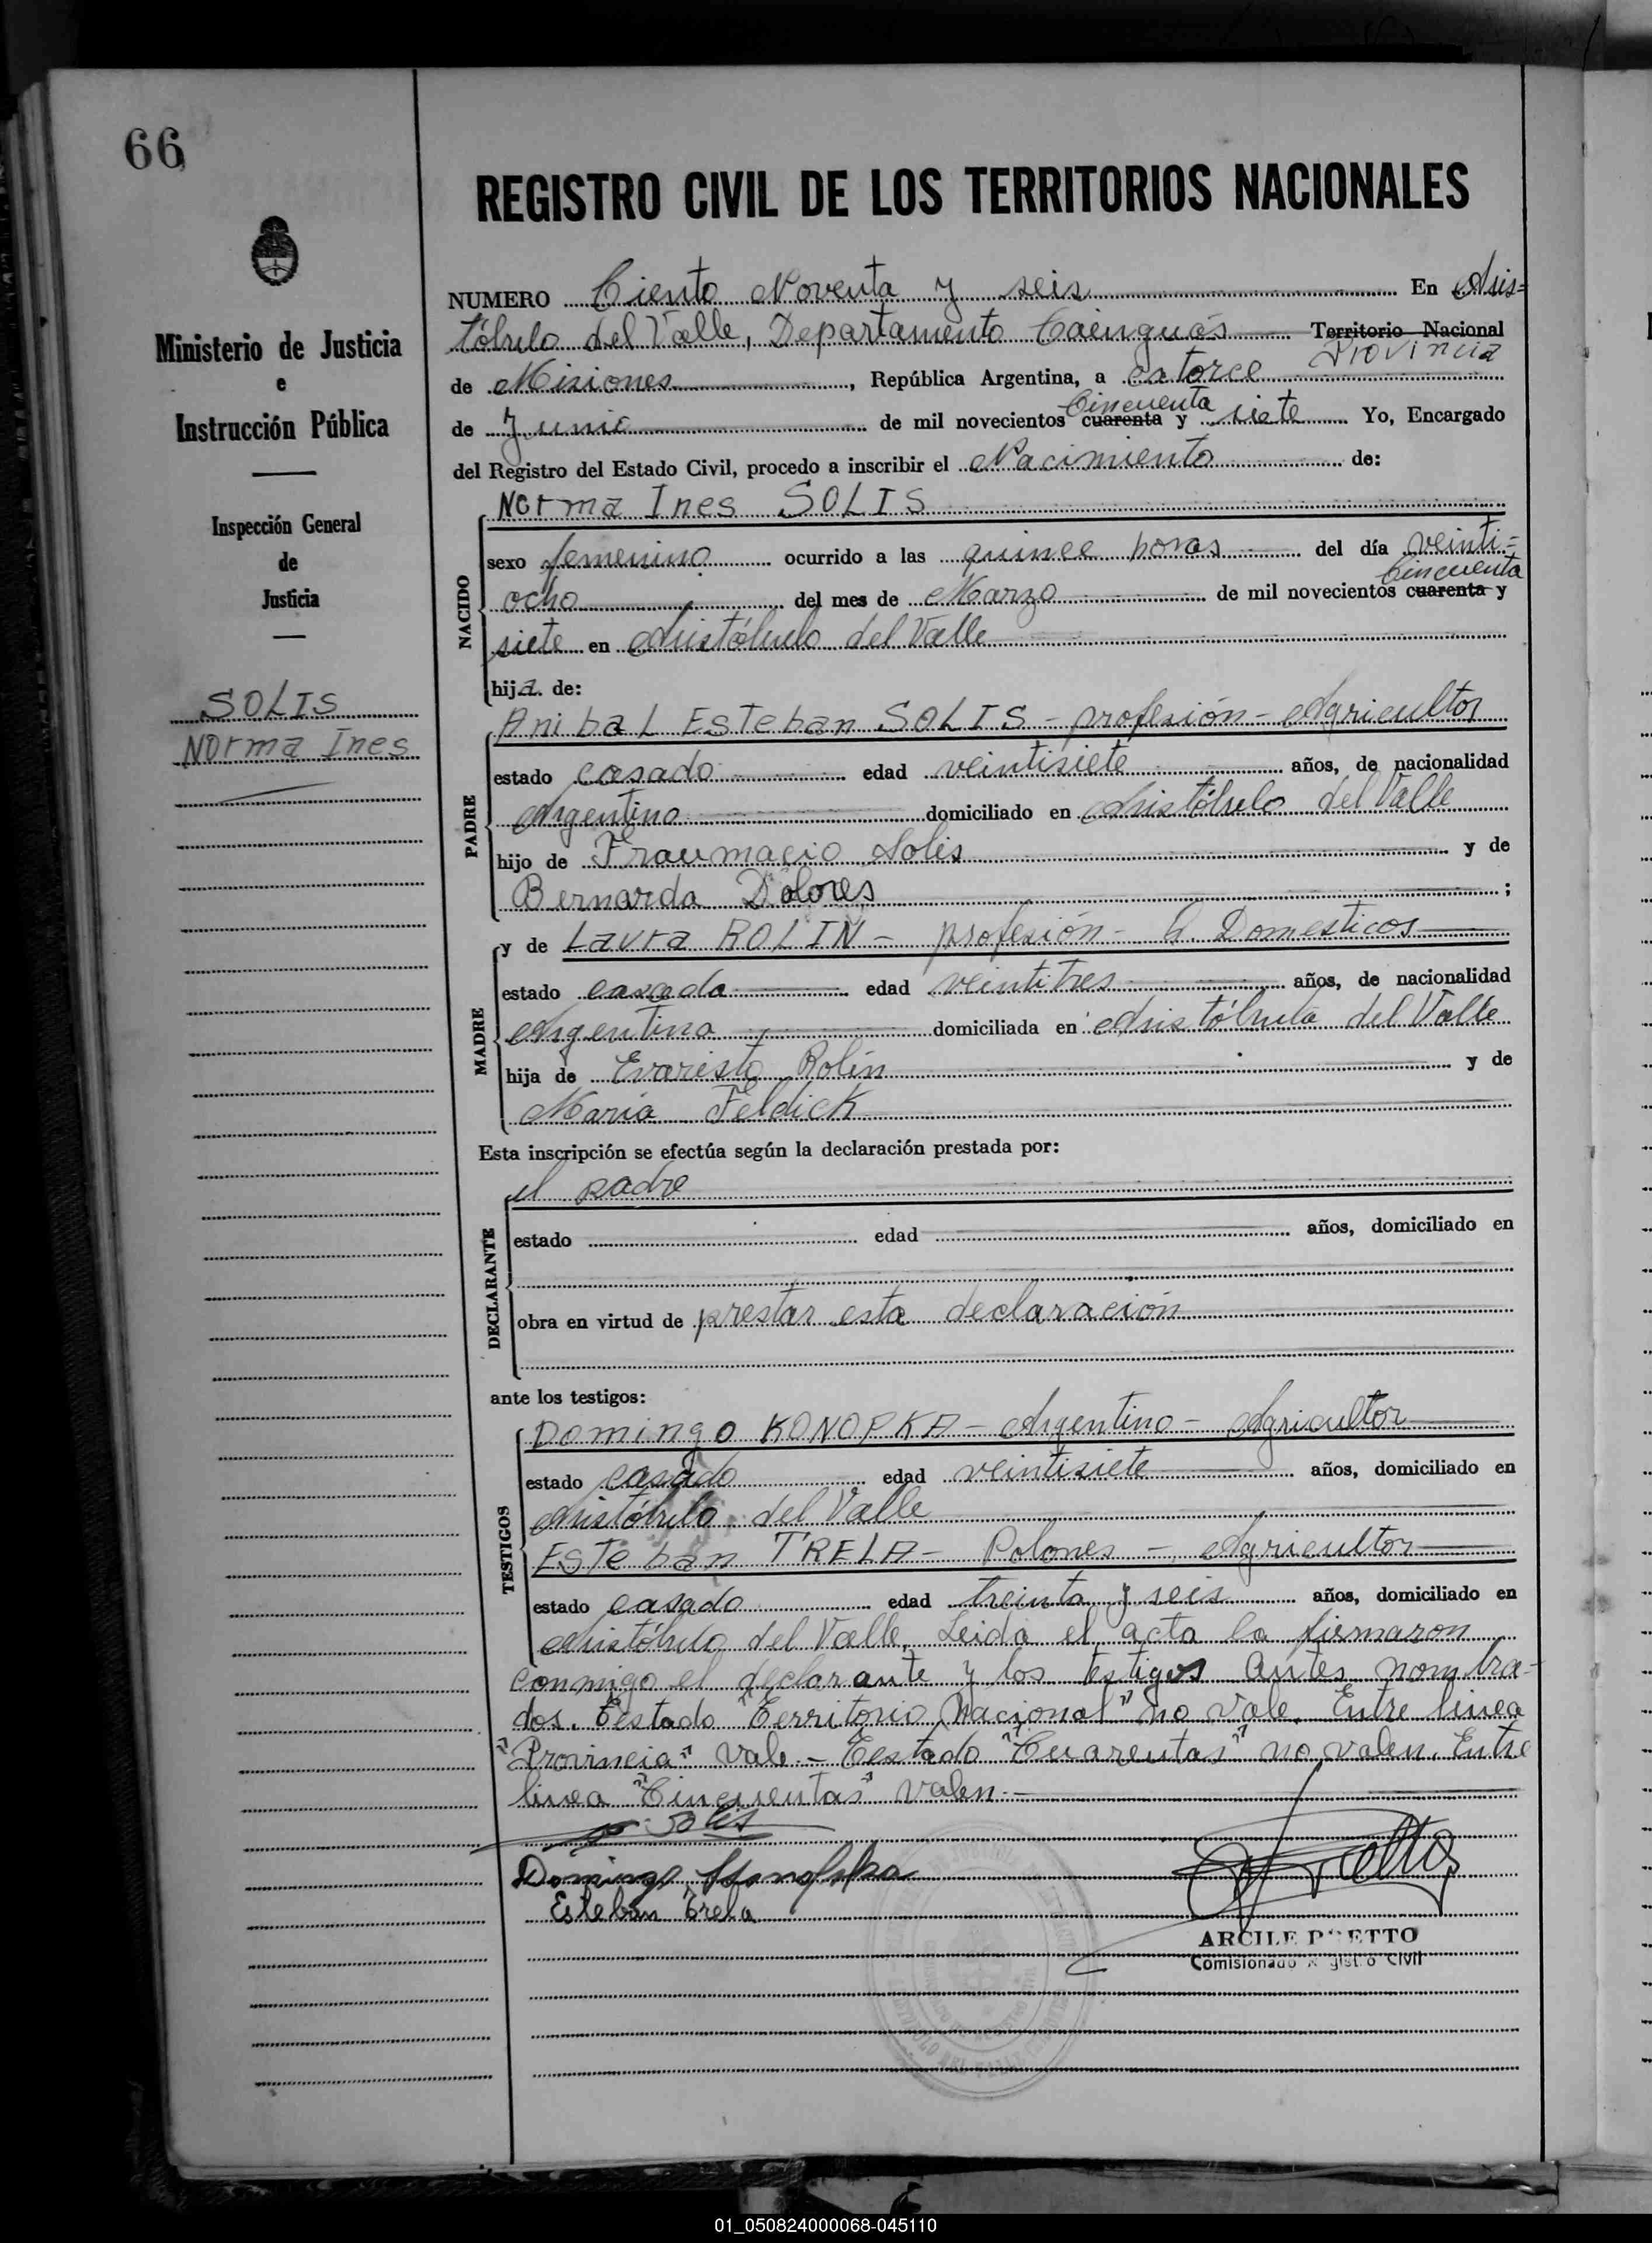 66
REGISTRO CIVIL DE LOS TERRITORIOS NACIONALES
Ministerio de Justicia
e
Instrucción Pública
Inspección General
de
Justicia
SOLIS
Norma Ines
NUMERO Ciento Noventa y seis En Aris=
tóbulo del Valle, Departamento Cainguás Territorio Nacional
Provincia
de Misiones, República Argentina, a catorce
Cincuenta
de Junio de mil novecientos cuarenta y siete Yo, Encargado
del Registro del Estado Civil, procedo a inscribir el Nacimiento de:
NACIDO
Norma Ines SOLIS
sexo femenino ocurrido a las quince horas del día veinti=
Cincuenta
ocho del mes de Marzo de mil novecientos cuarenta y
siete en Aristóbulo del Valle
hija de:
PADRE
Anibal Esteban SOLIS - profesión - Agricultor
estado casado edad veintisiete años, de nacionalidad
Argentino domiciliado en Aristóbulo del Valle
hijo de Fraumacio Solis y de
Bernarda Dolores ;
MADRE
y de Laura ROLIN - profesión - Q. Domesticos
estado casada edad veintitres años, de nacionalidad
Argentina domiciliada en Aristóbulo del Valle
hija de Evaristo Rolin y de
Maria Feldick
Esta inscripción se efectúa según la declaración prestada por:
DECLARANTE
el padre
estado edad años, domiciliado en
obra en virtud de prestar esta declaración
ante los testigos:
TESTIGOS
Domingo KONOPKA - Argentino - Agricultor
estado casado edad veintisiete años, domiciliado en
Aristóbulo del Valle
Esteban TRELA - Polones - Agricultor
estado casado edad treinta y seis años, domiciliado en
Aristóbulo del Valle. Leida el acta la firmaron
conmigo el declarante y los testigos antes nombra-
dos. Testado "Territorio Nacional" no vale. Entre linea
"Provincia" vale.- Testado "Cuarentas" no valen. Entre
linea "Cincuentas" valen.-
Solis
Domingo Konopka
Esteban Trela
ARCILE PRETTO
Comisionado Registro Civil
01_050824000068-045110